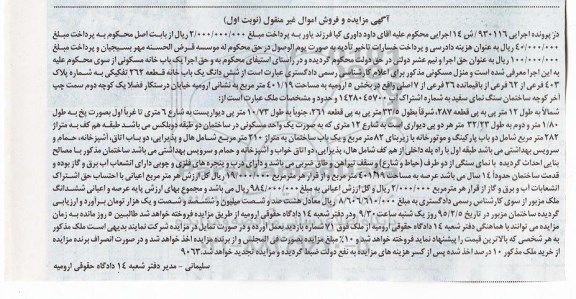 آگهی مزایده و فروش اموال غیر منقول (نوبت اول)
در پرونده اجرایی ۹۳۰۱۱۶/ش ۱۴ اجرایی محکوم علیه آقای داود داوری کیا فرزند یاور به پرداخت مبلغ ۲/۰۰۰/۰۰۰/۰۰۰ ریال از بابت اصل محکوم به پرداخت مبلغ
۴۰/۰۰۰/۰۰۰ ریال به عنوان هزینه دادرسی و پرداخت خسارات تاخیر تادیه به صورت یوم الوصول در حق محکوم له موسسه قرض الحسنه مهر بسیجیان و پرداخت مبلغ
۱۰۰/۰۰۰/۰۰۰ ریال به عنوان حق اجرا و نیم عشر دولتی در حق دولت محکوم گردیده و در راستای استیفای محکوم به و حق اجرا یک باب خانه مسکونی از سوی محکوم علیه
به این اجرا معرفی شده است و منزل مسکونی مذکور برای اعلام کارشناس رسمی دادگستری عبارت است از شش دانگ یک باب خانه قطعه ۳۶۲ تفکیکی به شماره پلاک
۴۰۳ فرعی از ۶۲ فرعی از باقیمانده ۳۶ فرعی از ۷ اصلی واقع در بخش ۵ ارومیه به مساحت ۴۰۱/۱۹ متر مربع به نشانی ارومیه خیابان درستکار فضلا یک کوچه دوم سمت چپ
آخر کوچه ساختمان سنگ نمای سفید به شماره اشتراک برق ۱۴۲۸۰۴۵۷۰۰ و حدود و مشخصات ملک عبارت است از:
شمالا به طول ۱۲ متر پی به پی قطعه ۲۸۷، شرقاً بطول ۳۳/۸۰ متر پی به پی قطعه ۳۶۱، جنوباً به طول ۱۰/۷۳ متر پی دیواریست به شارع ۶ متری تا غرباً اول بصورت پخ به طول
۱/۸۰ متر و دوم به طول ۳۲/۳۳ متر هر دو پی دیواری است به شارع ۱۲ متری که به صورت یک واحد مسکونی در ساختمان دو طبقه دوبلکس می باشد. طبقه هم کف به متراژ
۲۸۲ متر مربع شامل دو باب پارکینگ، موتورخانه با زیربنای ۸۲ متر مربع و یک باب ساختمان به متراژ ۲۱۰ متر مربع شامل هال و پذیرایی، دو باب اتاق، آشپزخانه، حمام و
سرویس بهداشتی می باشد طبقه اول با راه پله داخلی از هم کف شامل هال، پذیرایی، دو اتاق خواب و آشپزخانه و حمام و سرویس بهداشتی می باشد ساختمان مذکور با مصالح
بنایی احداث گردیده با نمای سنگی از دو طرف (حیاط و شارع) و سقف تیرآهن و طاق ضربی می باشد و دارای درب و پنجره های فلزی و چوبی دارای انشعاب آب برق و گاز بوده و
قدمت ساختمان حدوداً ۱۴ سال می باشد عرصه به مساحت ۴۰۱/۱۹ متر مربع و از قرار هر متر مربع ۱۹/۰۰۰/۰۰۰ ریال کل ارزش هر متر مربع اعیانی با احتساب حق اشتراک
انشعابات آب و برق و گاز از قرار هر متر مربع ۲/۰۰۰/۰۰۰ ریال و کل ارزش اعیانی به مبلغ ۹۸۴/۰۰۰/۰۰۰ ریال می باشد و مجموع بهای ارزش پایه عرصه و اعیانی ششدانگ
ملک مزبور از سوی کارشناس رسمی دادگستری به مبلغ ۸/۶۰۶/۶۱۰/۰۰۰ ریال معادل هشت صد و شصت میلیون و ششصد و شصت و یک هزار تومان برآورد و ارزیابی
گردیده ساختمان مزبور در تاریخ ۹۵/۲/۵ روز یک شنبه ساعت ۹/۳۰ در دفتر شعبه ۱۴ دادگاه حقوقی ارومیه از طریق مزایده فروخته خواهد شد طالبین ۵ روز مانده به زمان
مزایده می توانند با هماهنگی دفتر شعبه ۱۴ دادگاه حقوقی ارومیه از ملک فوق ۷۱ شماره بازدید بعمل آورده و در صورت تمایل در مزایده شرکت نمایند بدیهی است ملک مذکور
به هر شخصی که بالاترین قیمت را پیشنهاد نماید فروخته خواهد شد. ۱۰٪ مبلغ مزایده بصورت فی المجلس و از برنده مزایده اخذ خواهد شد و در صورت انصراف برنده مزایده
از خرید ملک مذکور ۱۰ درصد اخذ شده پس از کسر هزینه های مزایده به نفع دولت ضبط گردیده و مزایده تجدید خواهد شد. ۹۰۶۳
سلیمانی - مدیر دفتر شعبه ۱۴ دادگاه حقوقی ارومیه